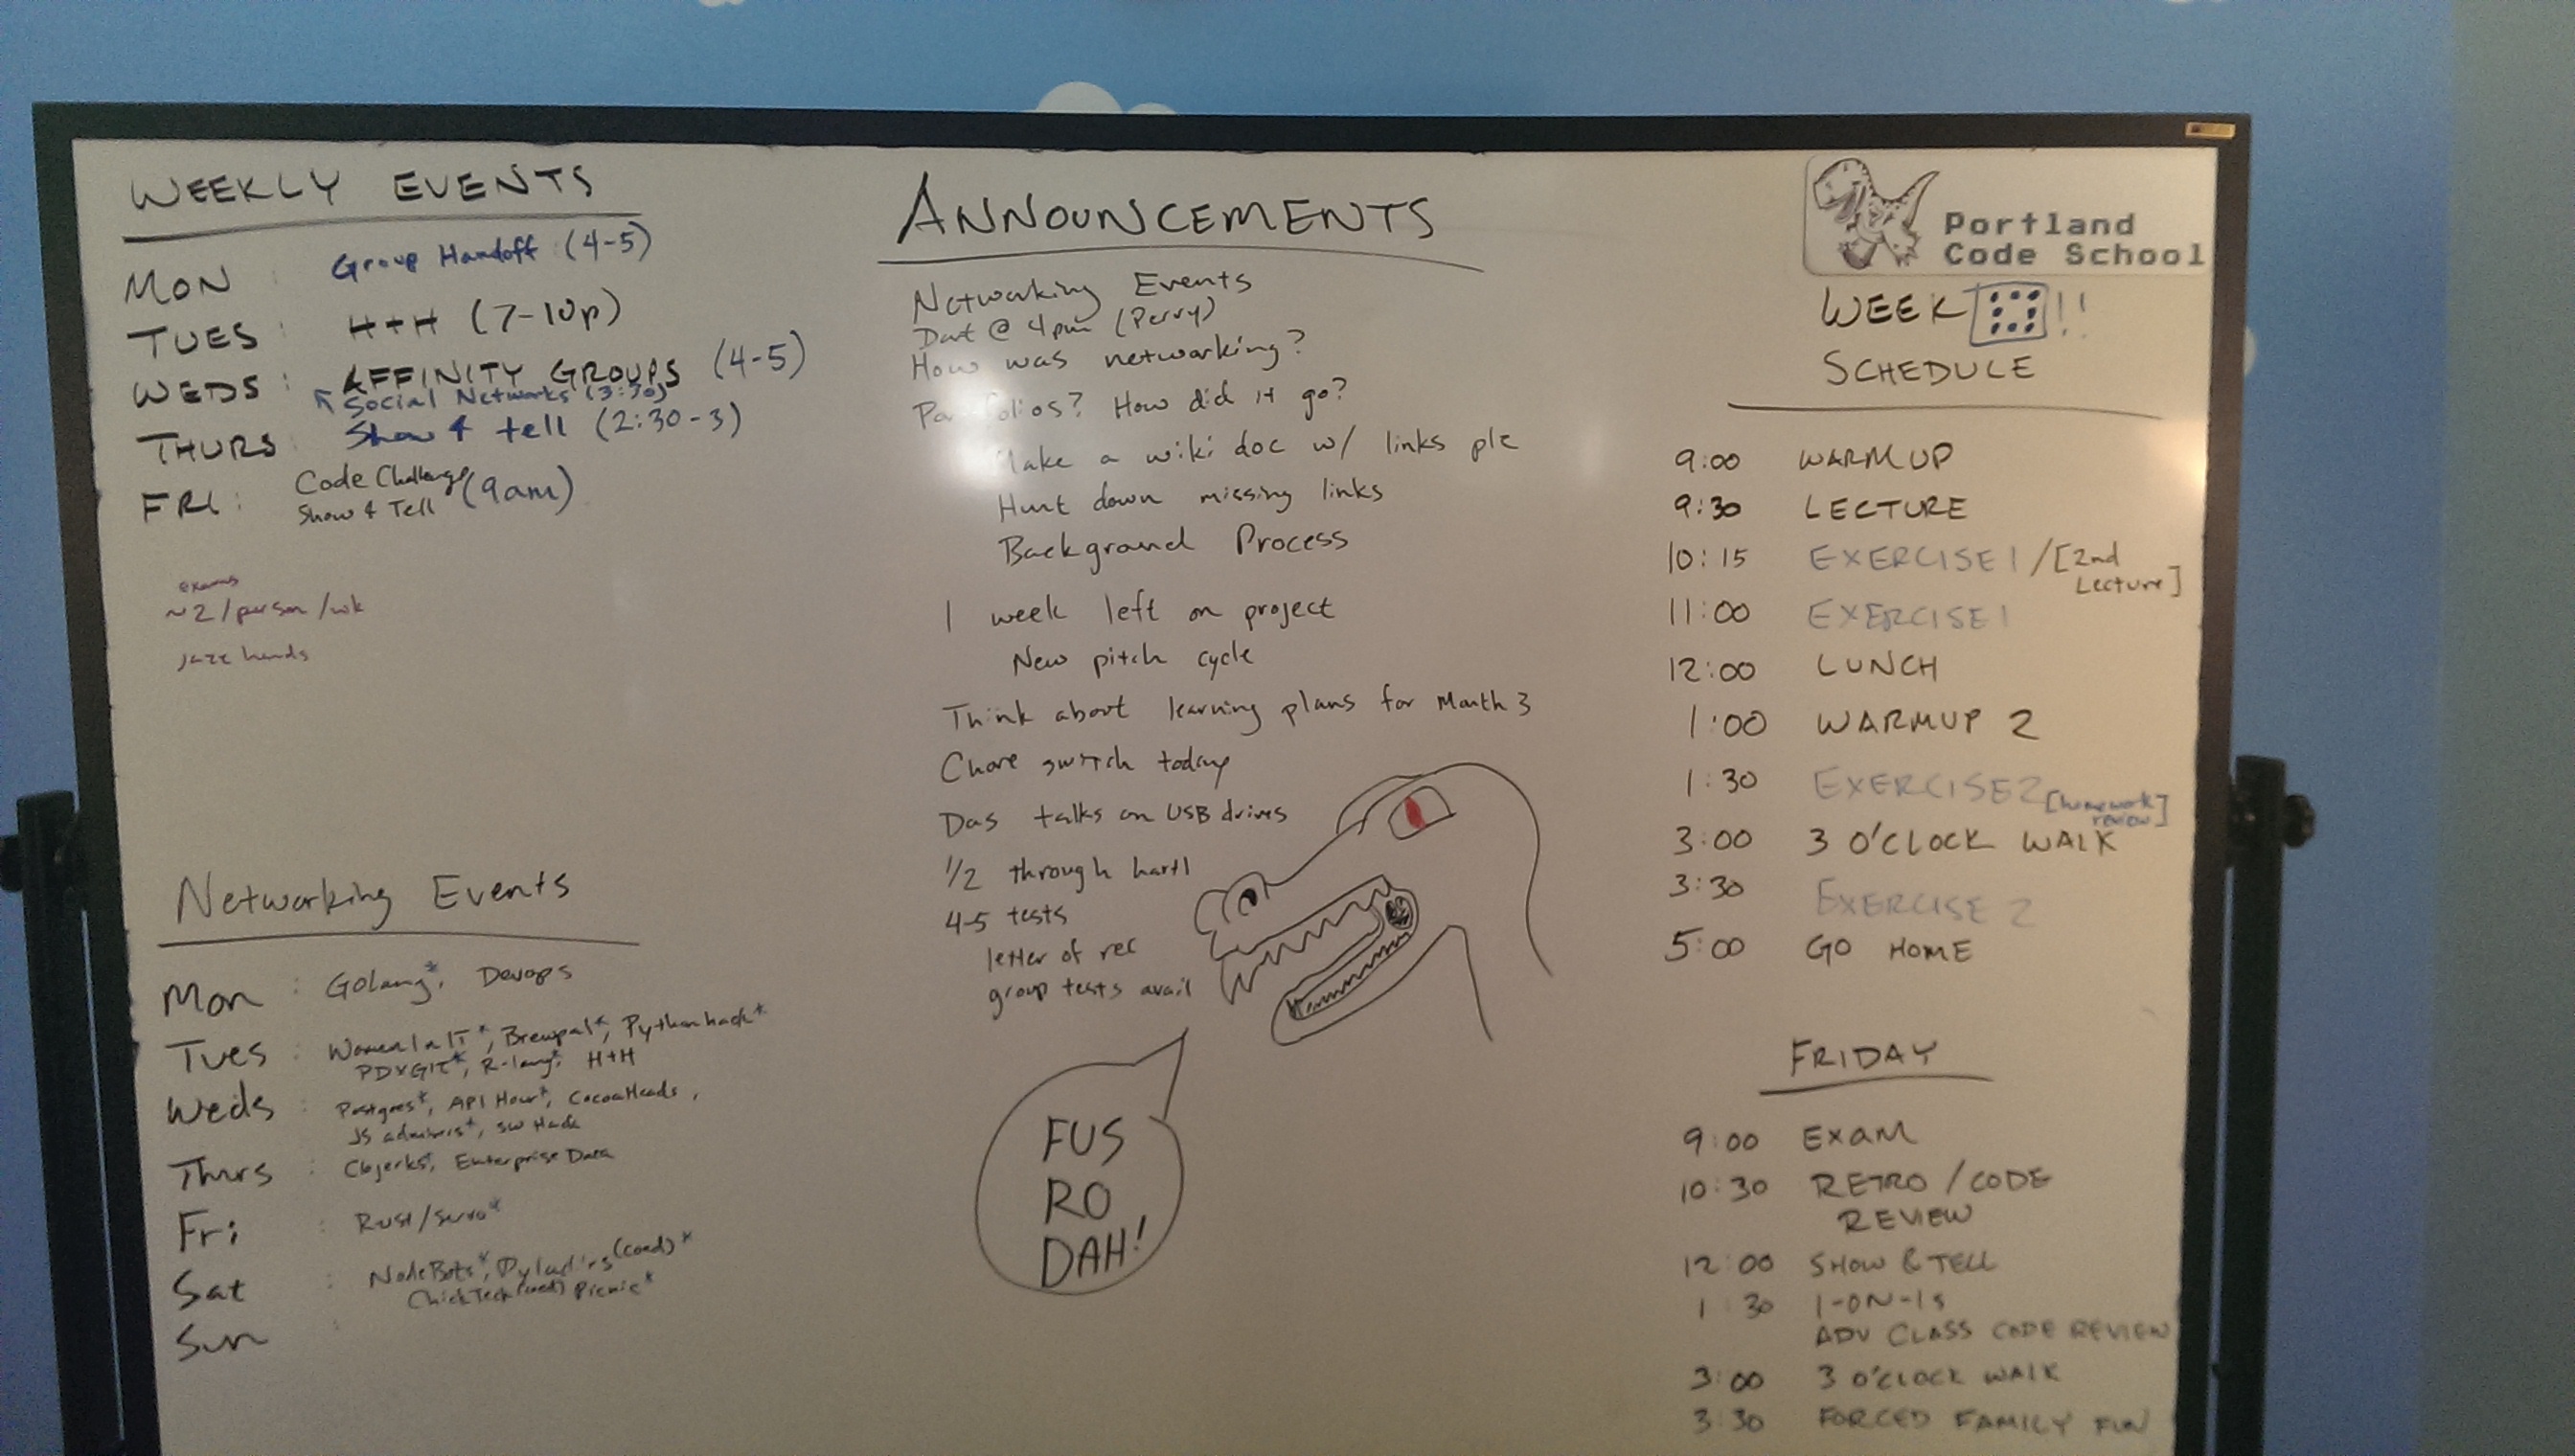 WEEKLY EVENTS
MON : Group Handoff (4-5)
TUES : H+H (7-10p)
WEDS : AFFINITY GROUPS (4-5)
Social Networks (3:30)
THURS Show & tell (2:30-3)
FRI : Code Challenge (9am)
Show & Tell
exams
~2/person/wk
jazz hands
Networking Events
Mon : Golang*, Devops
Tues : Women In IT*, Brewpal*, Pythonhack*
PDXGIT*, R-lang*, H+H
Weds : Postgres*, API Hour*, CocoaHeads,
JS admirers*, SW Hack
Thurs : Clojerks*, Enterprise Data
Fri : Rust/servo*
Sat : NodeBots*, Pyladies (coed)*
ChickTech (coed) Picnic*
Sun
ANNOUNCEMENTS
Networking Events
Dart @ 4pm (Perry)
How was networking?
Portfolios? How did it go?
Make a wiki doc w/ links plz
Hunt down missing links
Background Process
1 week left on project
New pitch cycle
Think about learning plans for Month 3
Chore switch today
Das talks on USB drives
1/2 through hartl
4-5 tests
letter of rec
group tests avail
FUS
RO
DAH!
Portland
Code School
WEEK !!
SCHEDULE
9:00 WARMUP
9:30 LECTURE
10:15 EXERCISE 1 / [2nd
Lecture]
11:00 EXERCISE 1
12:00 LUNCH
1:00 WARMUP 2
1:30 EXERCISE 2 [homework
review]
3:00 3 O'CLOCK WALK
3:30 EXERCISE 2
5:00 GO HOME
FRIDAY
9:00 EXAM
10:30 RETRO / CODE
REVIEW
12:00 SHOW & TELL
1:30 1-ON-1s
ADV CLASS CODE REVIEW
3:00 3 O'CLOCK WALK
3:30 FORCED FAMILY FUN